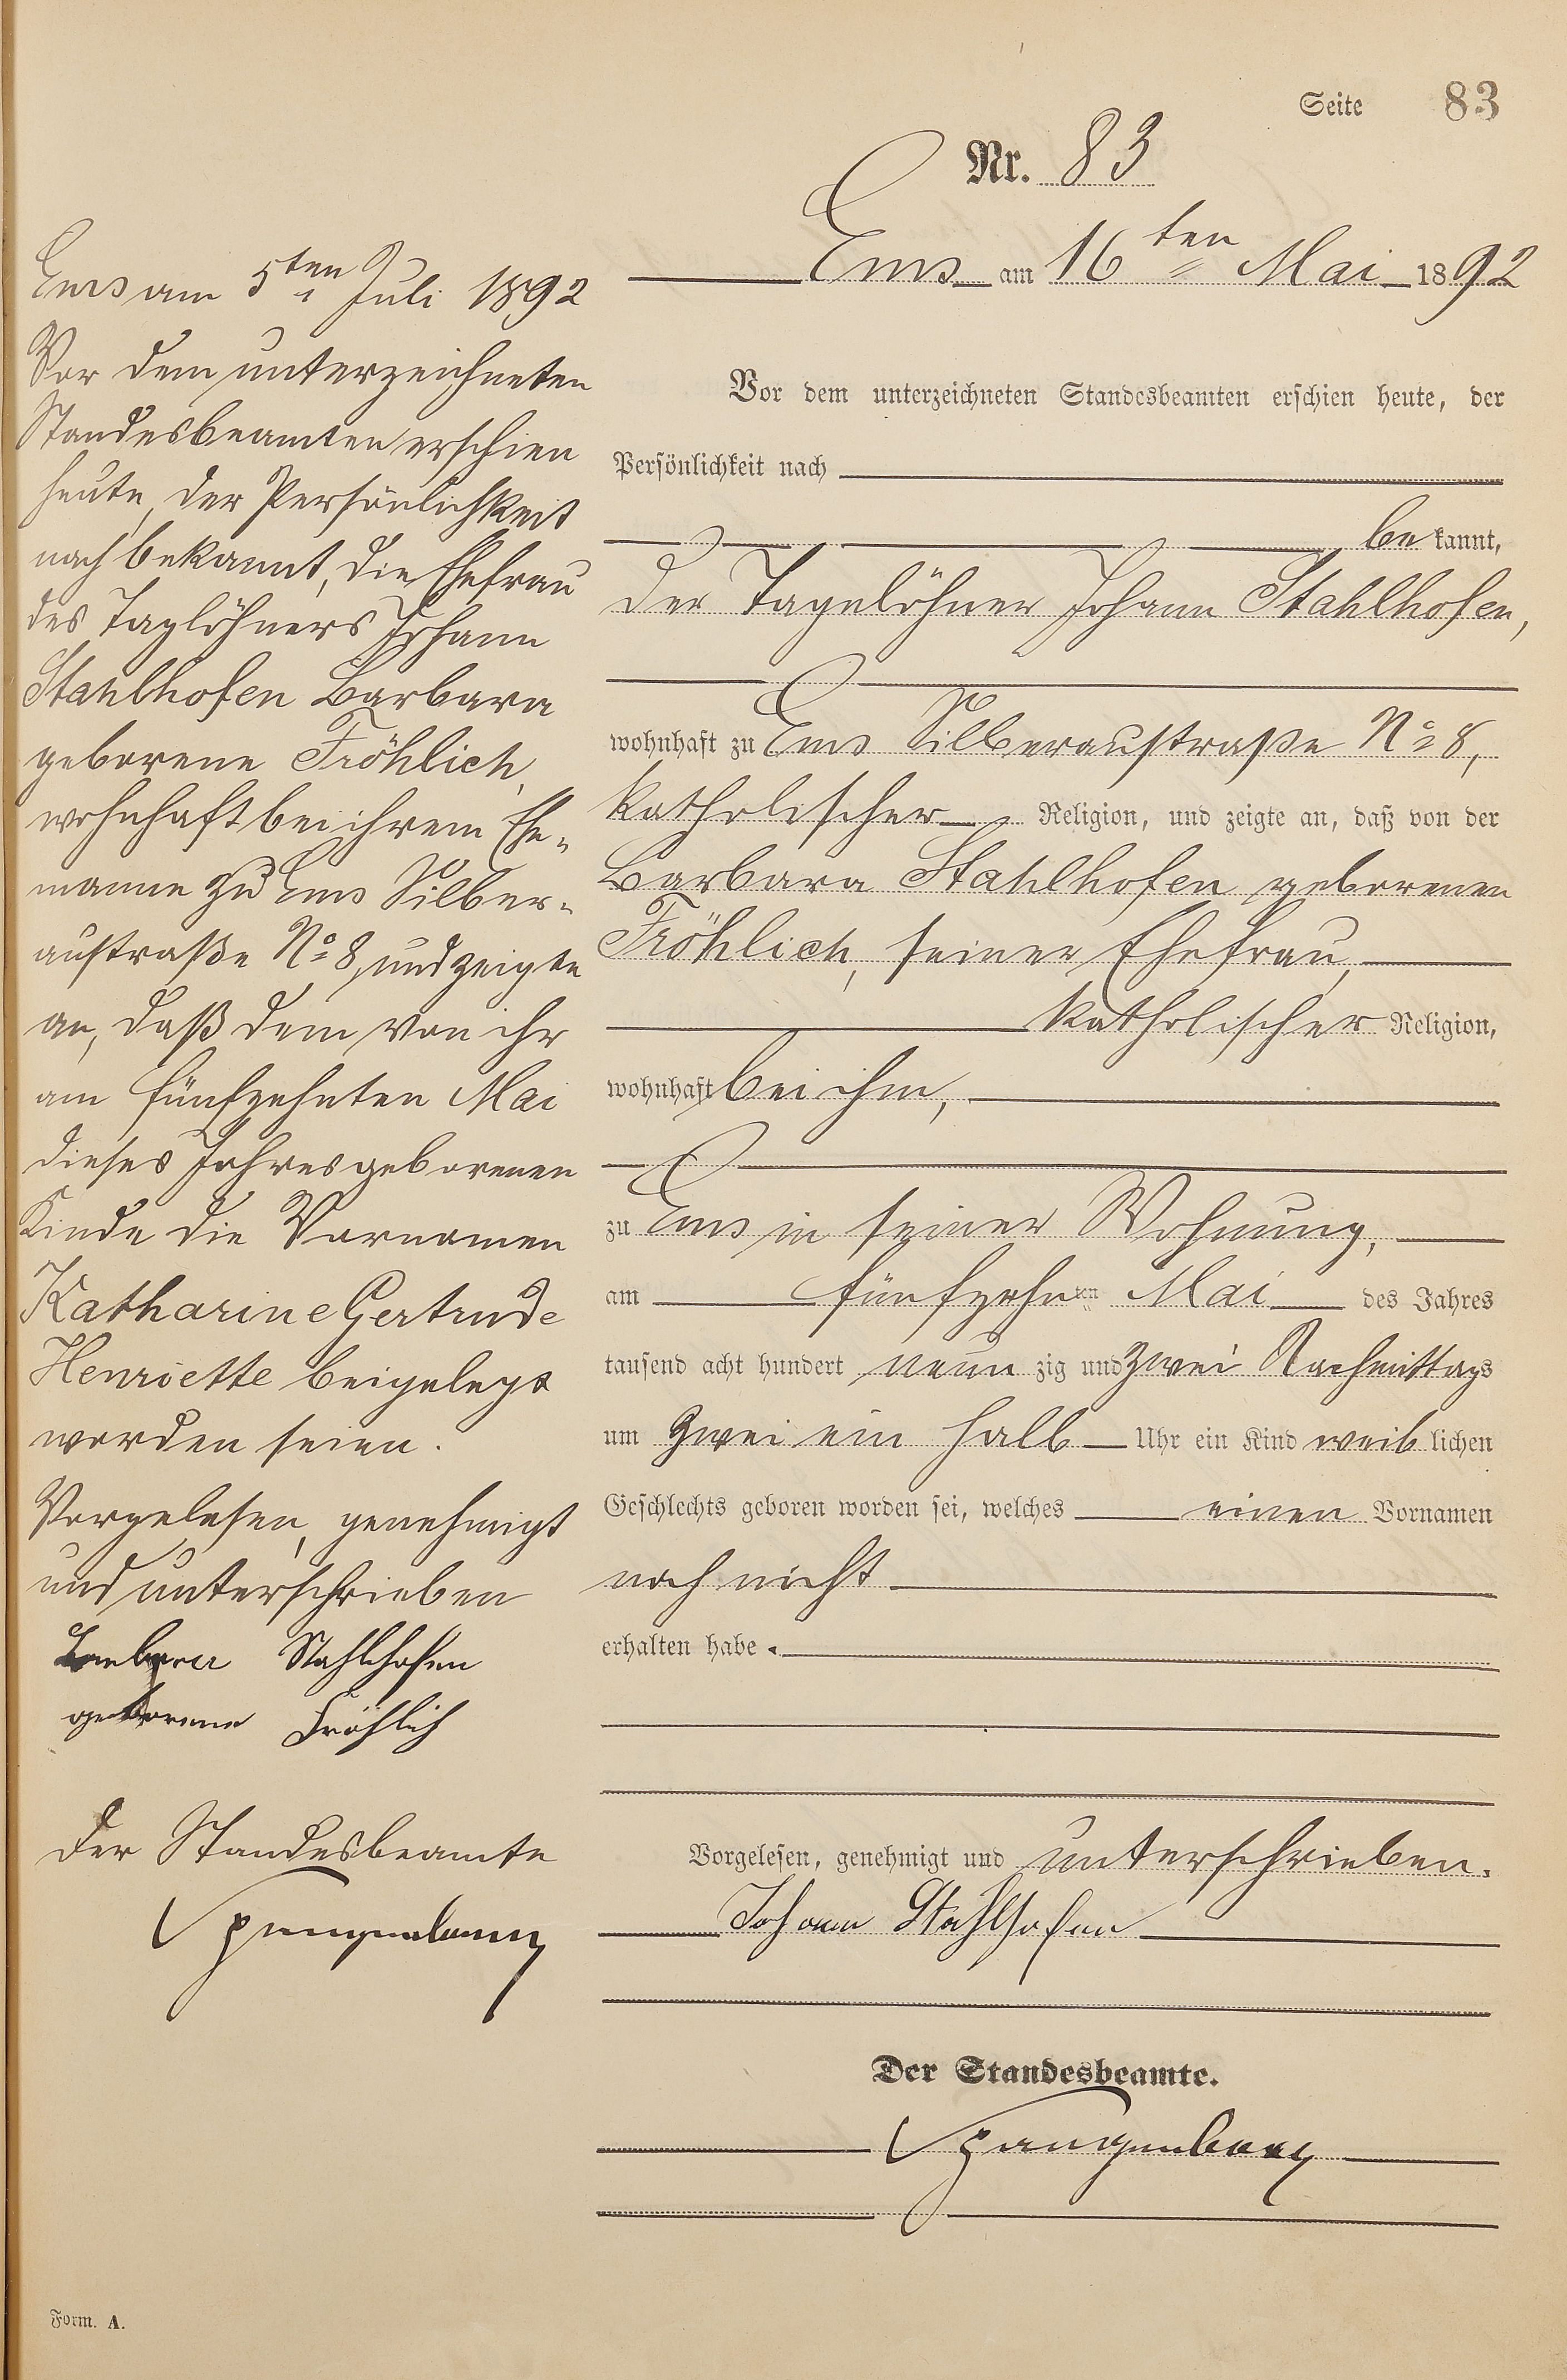 Seite 83
Nr. 83
Ems am 16ten Mai 1892
Vor dem unterzeichneten Standesbeamten erschien heute, der
Persönlichkeit nach
be kannt,
der Tagelöhner Johann Stahlhofen,
wohnhaft zu Ems Silberaustraße No 8,
katholischer Religion, und zeigte an, daß von der
Barbara Stahlhofen geborenen
Fröhlich, seiner Ehefrau,
katholischer Religion,
wohnhaft bei ihm,
zu Ems in seiner Wohnung,
am fünfzehnten Mai des Jahres
tausend acht hundert neun zig und zwei Nachmittags
um zwei ein halb Uhr ein Kind weib lichen
Geschlechts geboren worden sei, welches einen Vornamen
noch nicht
erhalten habe.
Vorgelesen, genehmigt und unterschrieben.
Johann Stahlhofen
Der Standesbeamte.
Spangenberg
Ems am 5ten Juli 1892
Vor dem unterzeichneten
Standesbeamten erschien
heute, der Persönlichkeit
nach bekannt, die Ehefrau
des Taglöhners Johann
Stahlhofen Barbara
geborene Fröhlich,
wohnhaft bei ihrem Ehe-
manne zu Ems Silber-
austraße No 8, und zeigte
an, daß dem von ihr
am fünfzehnten Mai
dieses Jahres geborenen
Kinde die Vornamen
Katharine Gertrude
Henriette beigelegt
worden seien.
Vorgelesen, genehmigt
und unterschrieben
Barbara Stahlhofen
geborene Fröhlich
Der Standesbeamte
Spangenberg
Form. A.